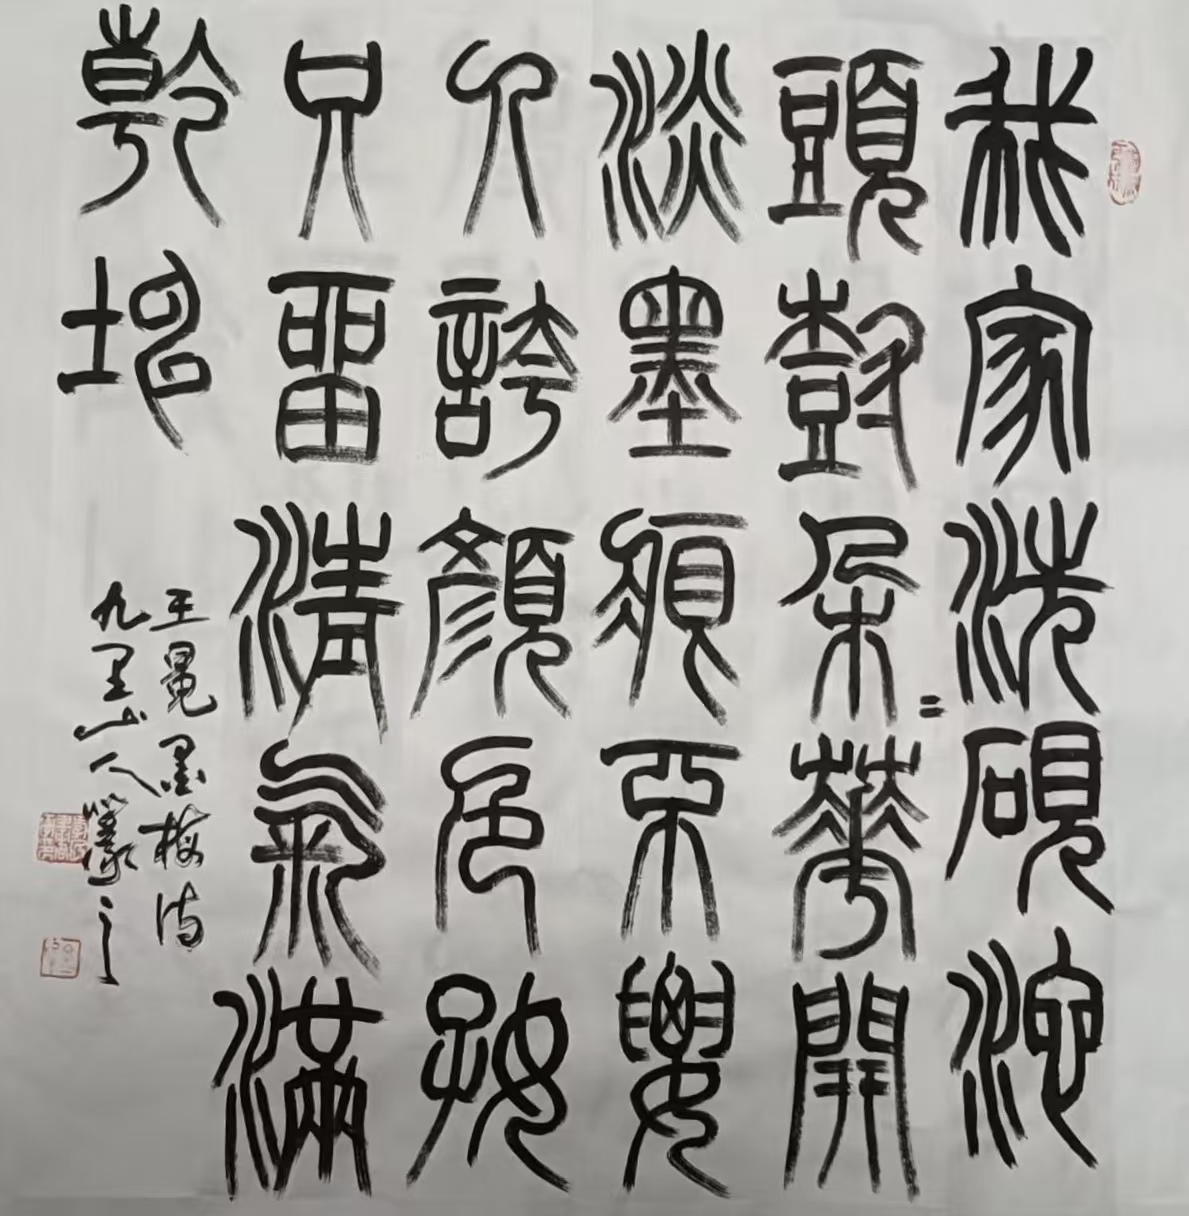 我家洗硯池
頭樹朵=華開
淡墨痕不要
人誇顏色好
只留清氣滿
乾坤
王冕墨梅诗
九里山人篆之